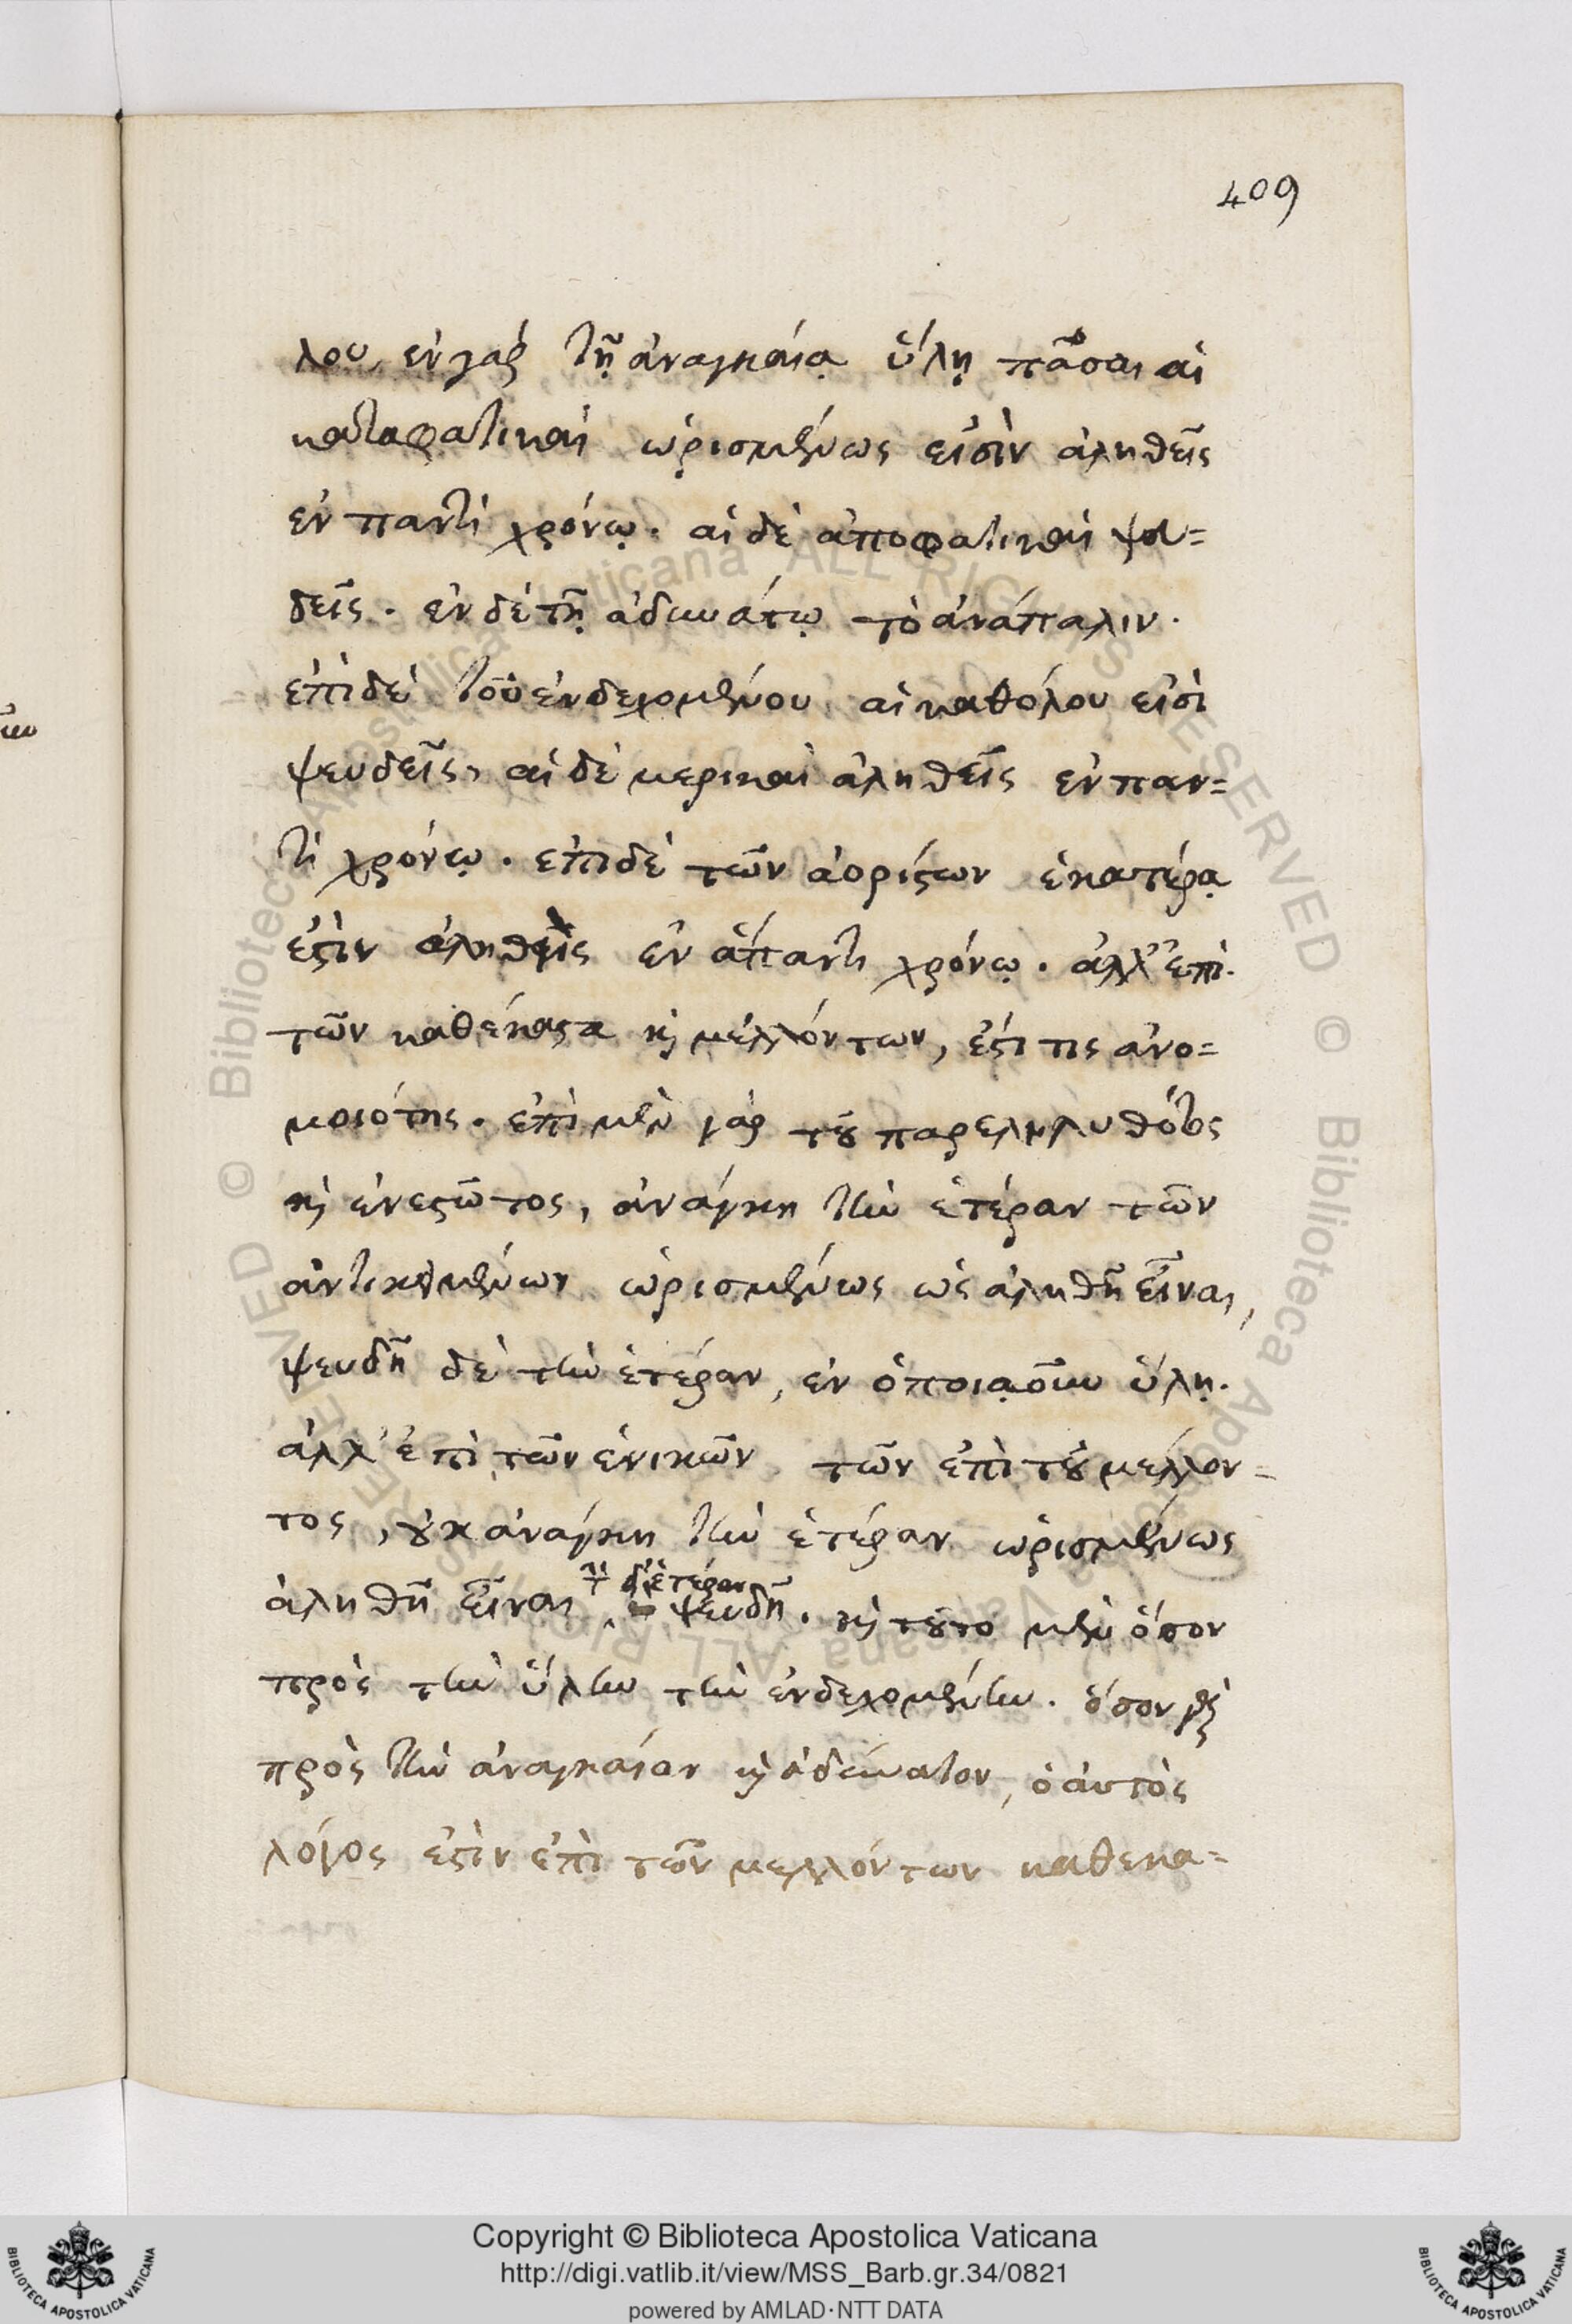 409
λου, ἐν γὰρ τῇ ἀναγκαίᾳ ὕλῃ πᾶσαι αἱ
καταφατικαὶ ὡρισμένως εἰσὶν ἀληθεῖς
ἐν παντὶ χρόνῳ. αἱ δὲ ἀποφατικαὶ ψευ=
δεῖς. ἐν δὲ τῇ ἀδυνάτῳ τὸ ἀνάπαλιν.
ἐπὶ δὲ τοῦ ἐνδεχομένου αἱ καθόλου εἰσὶ
ψευδεῖς, αἱ δὲ μερικαὶ ἀληθεῖς ἐν παν=
τὶ χρόνῳ. ἐπὶ δὲ τῶν ἀορίστων ἑκατέρα
ἐστὶν ἀληθὴς ἐν ἅπαντι χρόνῳ. ἀλλ' ἐπὶ
τῶν καθέκαστα κ̀ μελλόντων, ἐστί τις ἀνο=
μοιότης. ἐπὶ μὲν γὰρ τȣ͂ παρεληλυθότος
κ̀ ἐνεστῶτος, ἀνάγκη τὴν ἑτέραν τῶν
ἀντικειμένων ὡρισμένως ὡς ἀληθῆ εἶναι,
ψευδῆ δὲ τὴν ἑτέραν, ἐν ὁποιᾳοῦν ὕλῃ.
ἀλλ' ἐπὶ τῶν ἑνικῶν τῶν ἐπὶ τȣ͂ μέλλον=
τος, ȣ̓κ ἀνάγκη τὴν ἑτέραν ὡρισμένως
τὴν δ' ἑτέραν
ἀληθῆ εἶναι, ψευδῆ. κ̀ τȣ͂το μὲν ὅσον
πρὸς τὴν ὕλην τὴν ἐνδεχομένην. ὅσον γὰρ
πρὸς τὴν ἀναγκαίαν κ̀ ἀδύνατον, ὁ αὐτὸς
λόγος ἐστὶν ἐπὶ τῶν μελλόντων καθεκα=
Copyright © Biblioteca Apostolica Vaticana
http://digi.vatlib.it/view/MSS_Barb.gr.34/0821
powered by AMLAD·NTT DATA